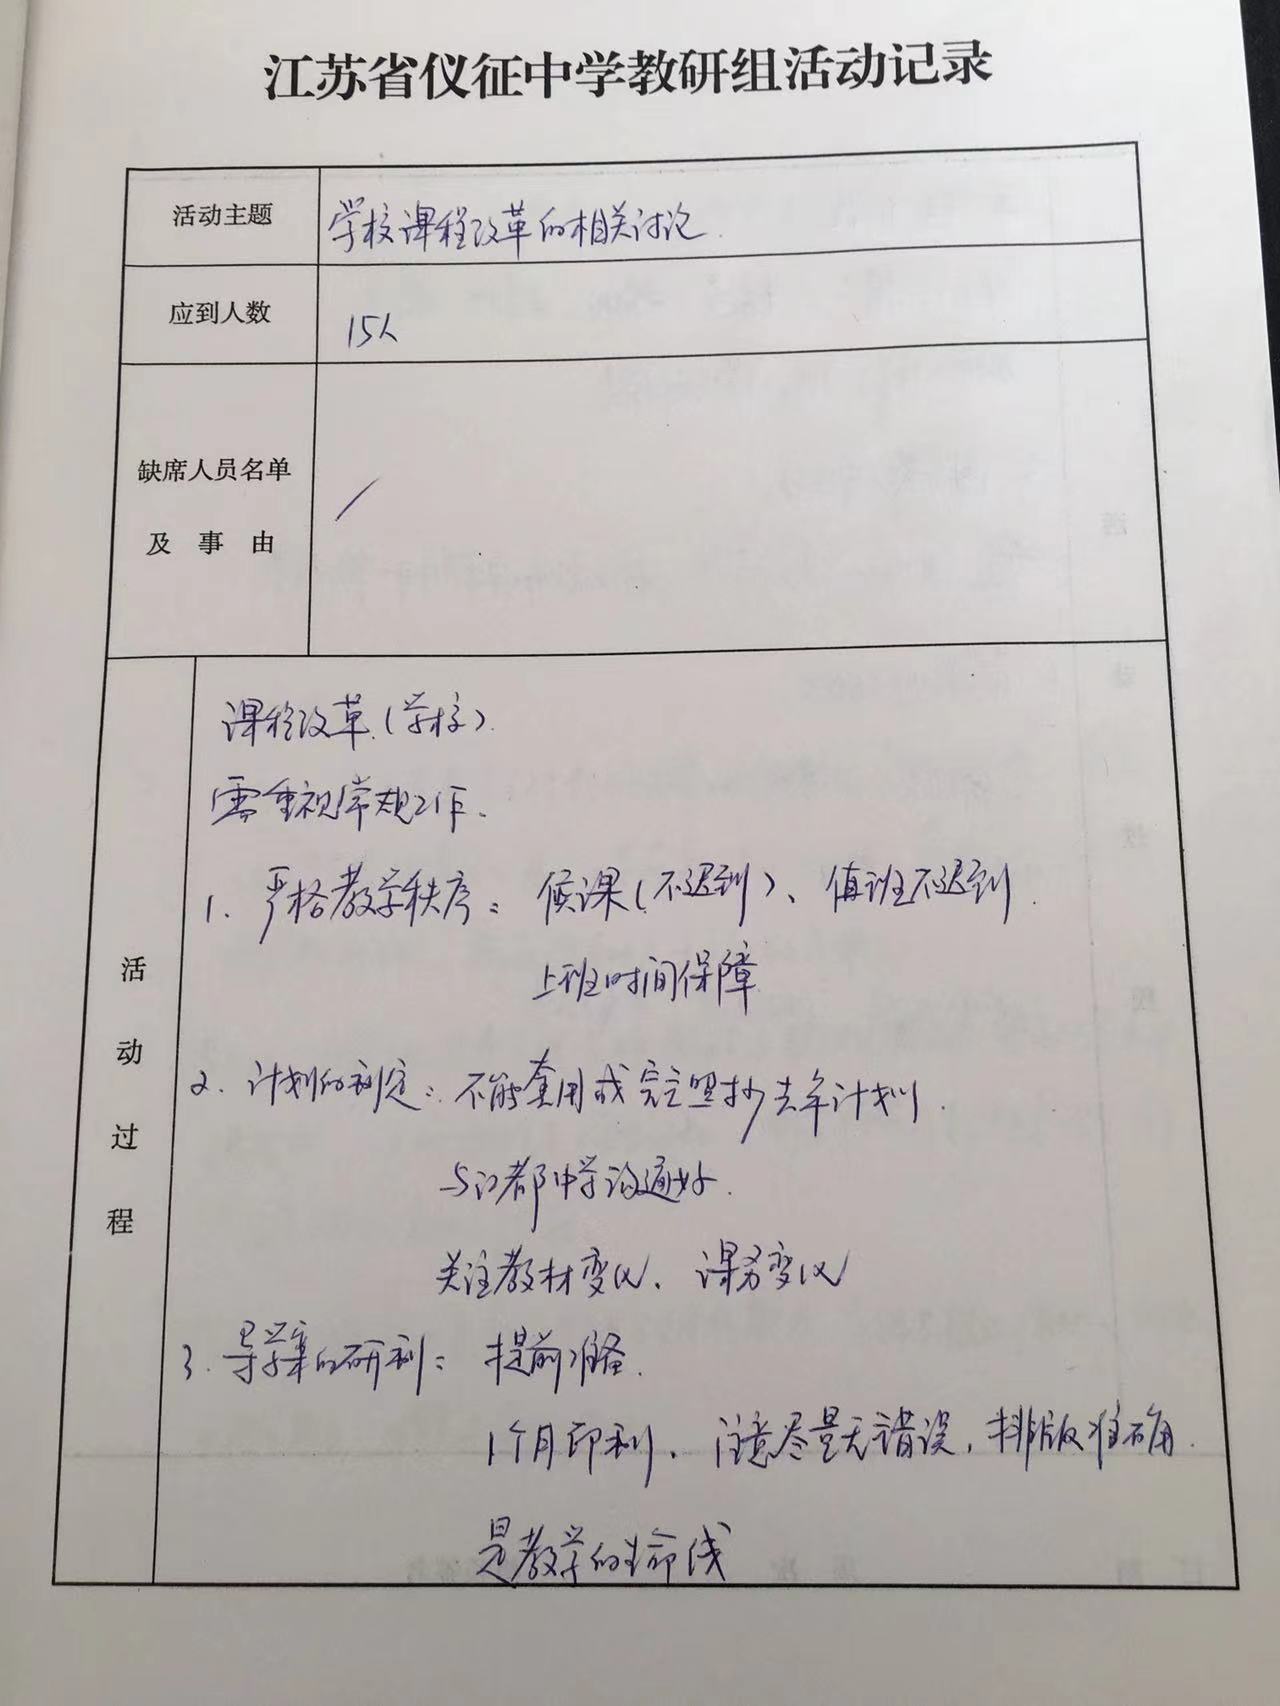 江苏省仪征中学教研组活动记录
活动主题
学校课程改革的相关讨论.
应到人数
15人
缺席人员名单
及事由
/
活动过程
课程改革.(学校).
需重视常规工作.
1. 严格教学秩序: 候课(不迟到)、值班不迟到.
上班时间保障.
2. 计划的制定: 不能套用或完全照抄去年计划.
与江都中学沟通好.
关注教材变化、课务变化
3. 导学案的研制: 提前准备.
1个月印制、注意尽量无错误, 排版准确.
是教学的生命线